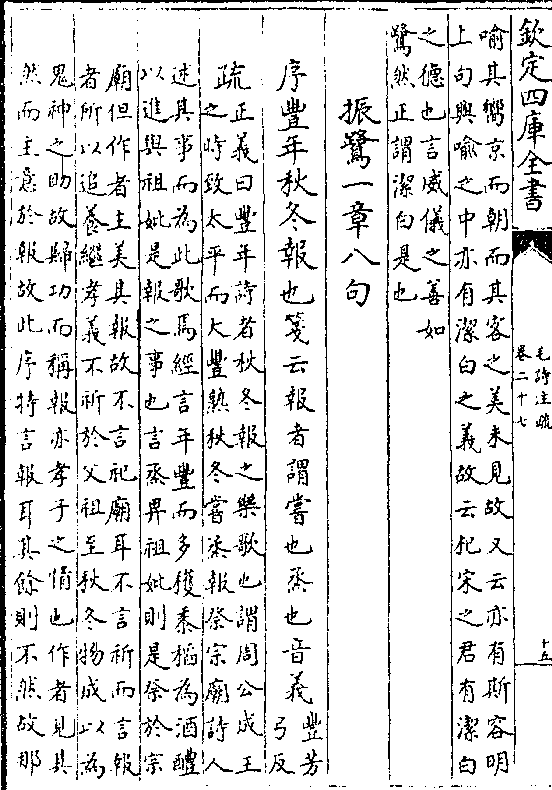 欽定四庫全書
毛詩注疏
卷二十七
十五
喻其嚮京而朝而其客之美未見故又云亦有斯容明
上句興喻之中亦有潔白之義故云杞宋之君有潔白
之德也言威儀之善如
鷺然正謂潔白是也
振鷺一章八句
序豐年秋冬報也箋云報者謂嘗也烝也音義
豐芳
弓反
疏
正義曰豐年詩者秋冬報之樂歌也謂周公成王
之時致太平而大豐熟秋冬嘗烝報祭宗廟詩人
述其事而為此歌焉經言年豐而多獲黍稻為酒醴
以進與祖妣是報之事也言烝畀祖妣則是祭於宗
廟但作者主美其報故不言祀廟耳不言祈而言報
者所以追養繼孝義不祈於父祖至秋冬物成以為
鬼神之助故歸功而稱報亦孝子之情也作者見其
然而主意於報故此序特言報耳其餘則不然故那